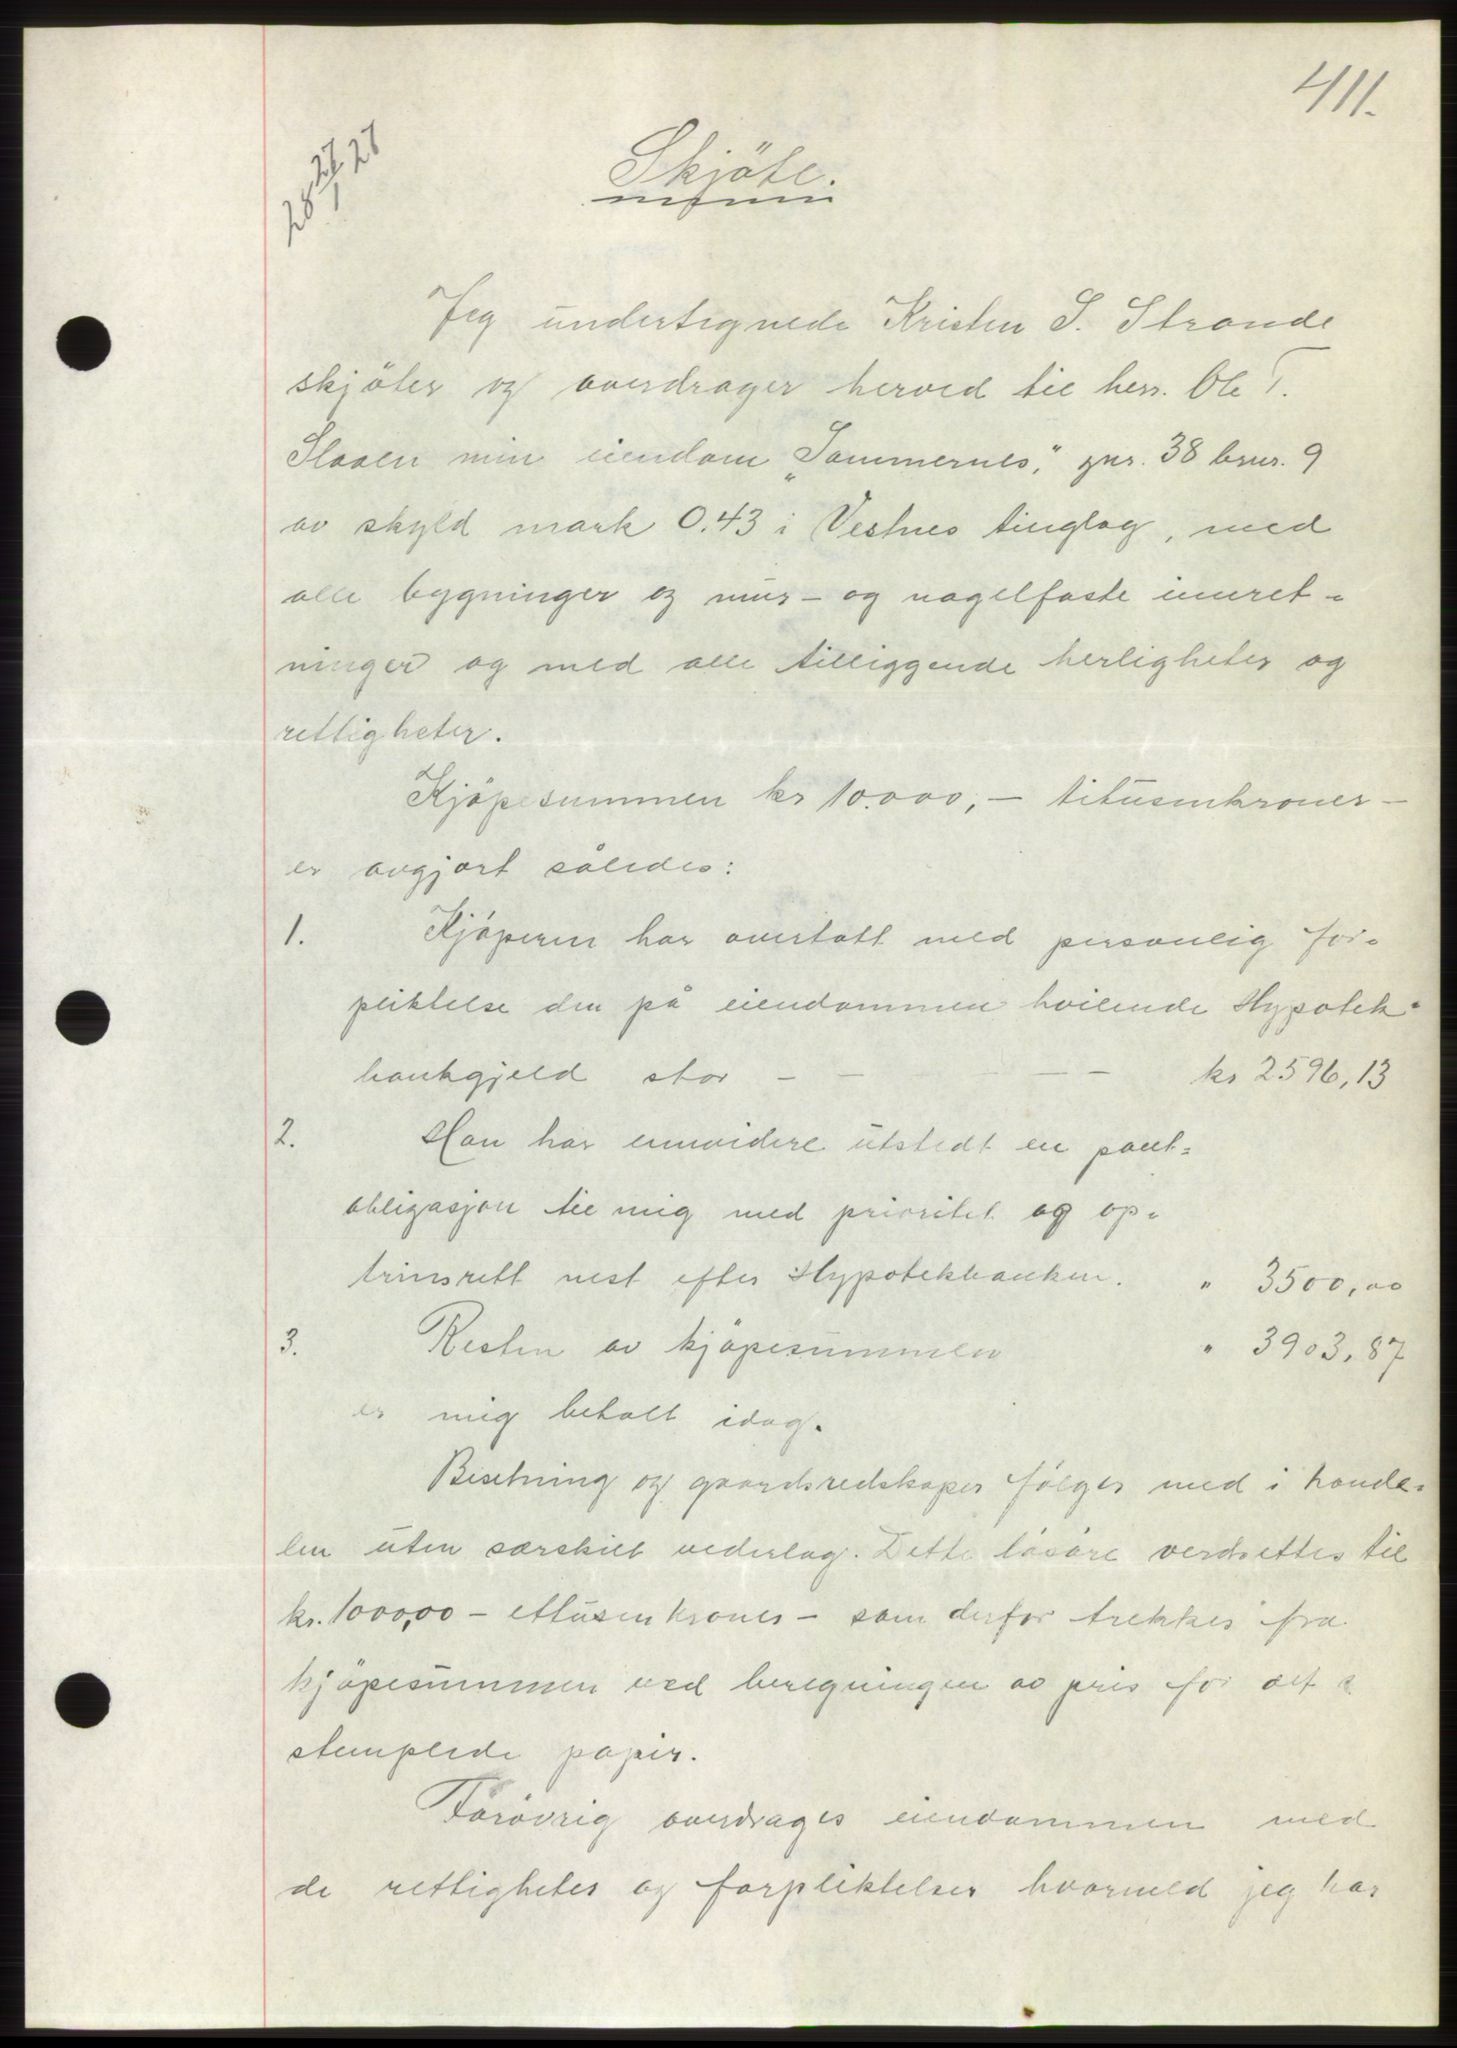 411.
28 27/1 28
Skjöte.
Jeg undertegnede Kristen S. Strande
skjöter og overdrager herved til herr. Ole T.
Slaaen min eiendom „Sommernes," gnr. 38 brnr. 9
av skyld mark 0.43 i Vestnes tinglag, med
alle bygninger og mur- og nagelfaste innret-
ninger og med alle tilliggende herligheter og
rettigheter.
Kjöpesummen kr 10.000,- titusenkroner -
er avgjort således:
1. Kjöperen har overtatt med personlig for-
pliktelse den på eiendommen hvilende Hypotek-
bankgjeld stor - - - - kr 2596,13
2. Han har ennvidere utstedt en pant-
obligasjon til mig med prioritet og op-
trinsrett nest efter Hypotekbanken. " 3500,00
3. Resten av kjöpesummen " 3903,87
er mig betalt idag.
Besetning og gaardsredskaper fölger med i hande-
len uten særskilt vederlag. Dette lösöre verdsettes til
kr. 1000,00 - ettusenkroner - som derfor trekkes fra
kjöpesummen ved beregningen av pris for det
stemplede papir.
Forövrig overdrages eiendommen med
de rettigheter og forpliktelser hvormed jeg har